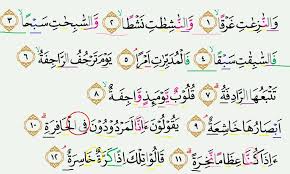 وَالنّٰزِعٰتِ غَرْقًاۙ ١ وَّالنّٰشِطٰتِ نَشْطًاۙ ٢ وَّالسّٰبِحٰتِ سَبْحًاۙ ٣
فَالسّٰبِقٰتِ سَبْقًاۙ ٤ فَالْمُدَبِّرٰتِ اَمْرًاۘ ٥ يَوْمَ تَرْجُفُ الرَّاجِفَةُۙ ٦
تَتْبَعُهَا الرَّادِفَةُۗ ٧ قُلُوْبٌ يَّوْمَىِٕذٍ وَّاجِفَةٌۙ ٨
اَبْصَارُهَا خَاشِعَةٌۘ ٩ يَقُوْلُوْنَ ءَاِنَّا لَمَرْدُوْدُوْنَ فِى الْحَافِرَةِۗ ١٠
ءَاِذَا كُنَّا عِظَامًا نَّخِرَةًۗ ١١ قَالُوْا تِلْكَ اِذًا كَرَّةٌ خَاسِرَةٌۘ ١٢